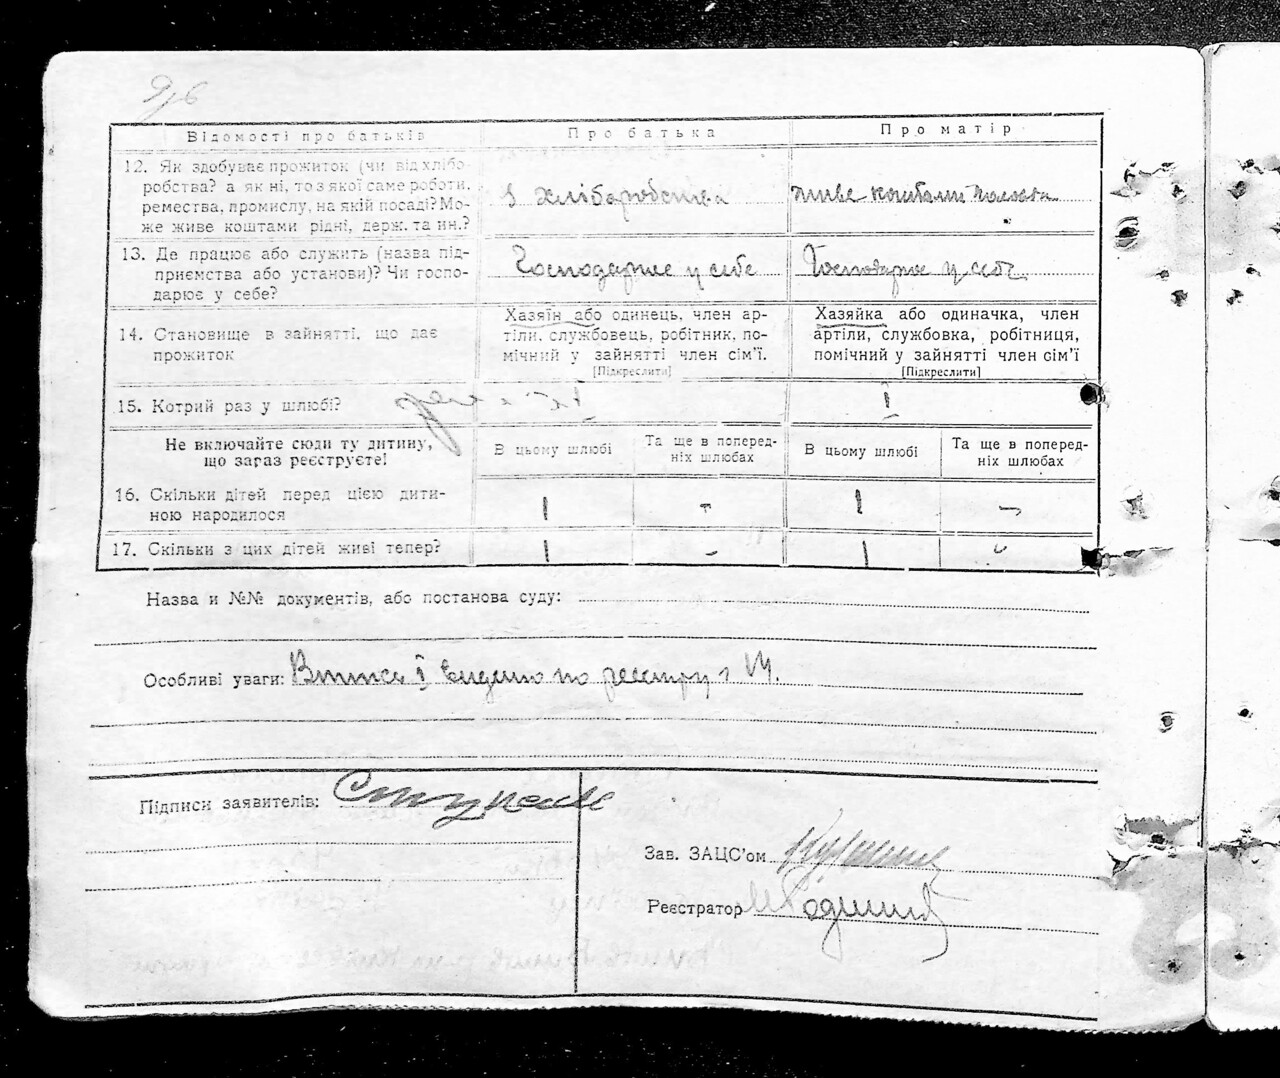 Відомості про батьків
Про батька
Про матір
12. Як здобуває прожиток (чи від хлібо-
робства? а як ні, то з якої саме роботи,
ремества, промислу, на якій посаді? Мо-
же живе коштами рідні, держ. та ин.?
з хліборобства
живе коштами чоловіка
13. Де працює або служить (назва під-
приємства або установи)? Чи госпо-
дарює у себе?
Господарює у себе
Господарює у себе
14. Становище в зайнятті, що дає
прожиток
Хазяїн або одинець, член ар-
тіли, службовець, робітник, по-
мічний у зайнятті член сім'ї.
[Підкреслити]
Хазяйка або одиначка, член
артіли, службовка, робітниця,
помічний у зайнятті член сім'ї
[Підкреслити]
15. Котрий раз у шлюбі?
І
Не включайте сюди ту дитину,
що зараз реєструєте!
В цьому шлюбі
Та ще в поперед-
ніх шлюбах
В цьому шлюбі
Та ще в поперед-
ніх шлюбах
16. Скільки дітей перед цією дити-
ною народилося
1 - 1 -
17. Скільки з цих дітей живі тепер?
1 - 1 -
Назва и №№ документів, або постанова суду:
Особливі уваги: Витяг і видано по реєстру
Підписи заявителів:
Зав. ЗАЦС'ом
Реєстратор